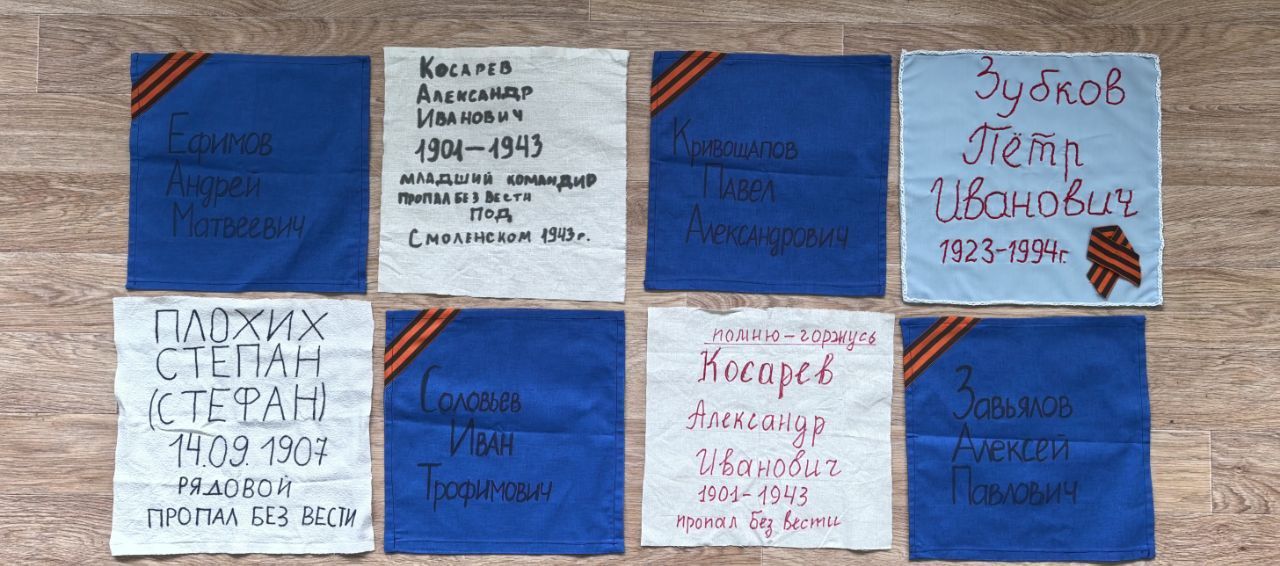 Ефимов
Андрей
Матвеевич
Косарев
Александр
Иванович
1901-1943
младший командир
пропал без вести
под
Смоленском 1943г.
Кривощапов
Павел
Александрович
Зубков
Пётр
Иванович
1923-1994г.
ПЛОХИХ
СТЕПАН
(СТЕФАН)
14.09.1907
РЯДОВОЙ
ПРОПАЛ БЕЗ ВЕСТИ
Соловьев
Иван
Трофимович
помню-горжусь
Косарев
Александр
Иванович
1901-1943
пропал без вести
Завьялов
Алексей
Павлович